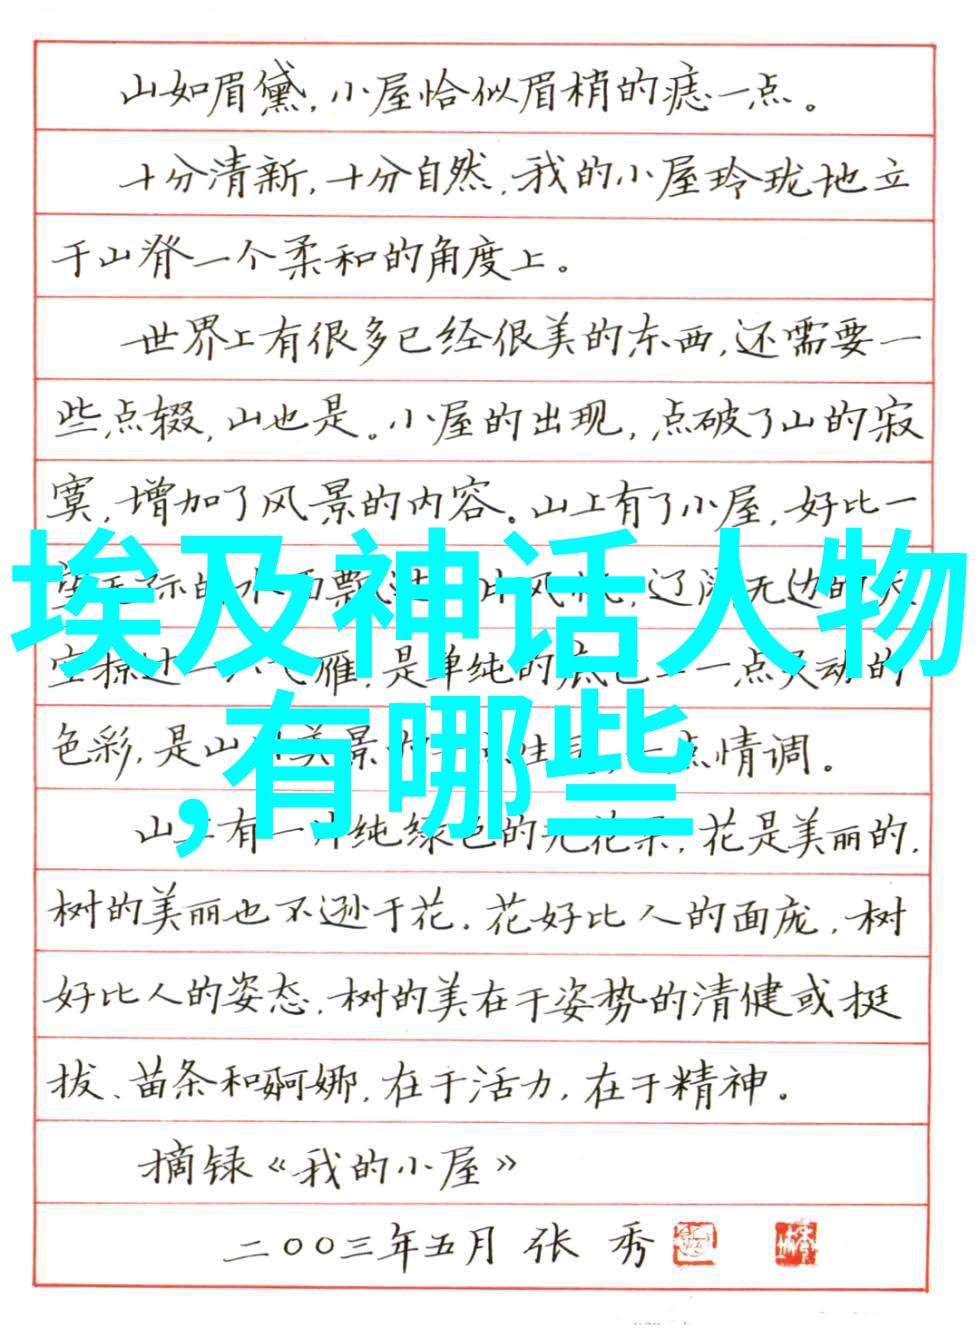 山如眉黛,小屋恰似眉梢的痣一点。
十分清新,十分自然,我的小屋玲珑地立
于山脊一个柔和的角度上。
世界上有很多已经很美的东西,还需要一
些点缀,山也是。小屋的出现,点破了山的寂
寞,增加了风景的内容。山上有了小屋,好比一
埃及神话人物
,有哪些
辽阔无边的
雁,是单纯的底色上一点灵动的
色彩,是山 美景 点情调。
山上有一片纯绿色的无花果,花是美丽的,
树的美丽也不逊于花。花好比人的面庞,树
好比人的姿态。树的美在于姿势的清健或挺
拔、苗条和婀娜,在于活力,在于精神。
摘录《我的小屋》
二〇〇三年五月 张 秀